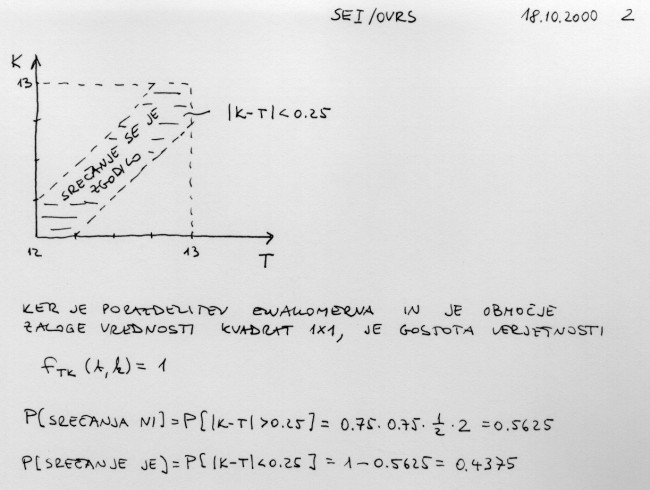 SEI/OVRS 18.10.2000 2
K
13
|K-T|<0.25
SREČANJE SE JE
ZGODILO
12 13
T
KER JE PORAZDELITEV ENAKOMERNA IN JE OBMOČJE
ZALOGE VREDNOSTI KVADRAT 1X1, JE GOSTOTA VERJETNOSTI
f_TK (t,k) = 1
P[SREČANJA NI] = P[|K-T|>0.25] = 0.75 · 0.75 · 1/2 · 2 = 0.5625
P[SREČANJE JE] = P[|K-T|<0.25] = 1-0.5625 = 0.4375